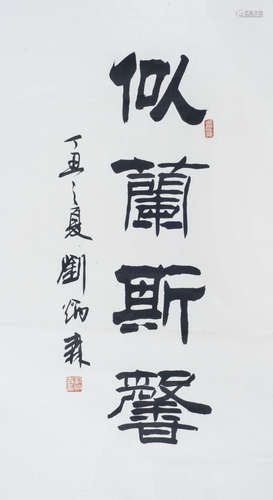 似蘭斯馨
丁丑之夏劉炳森